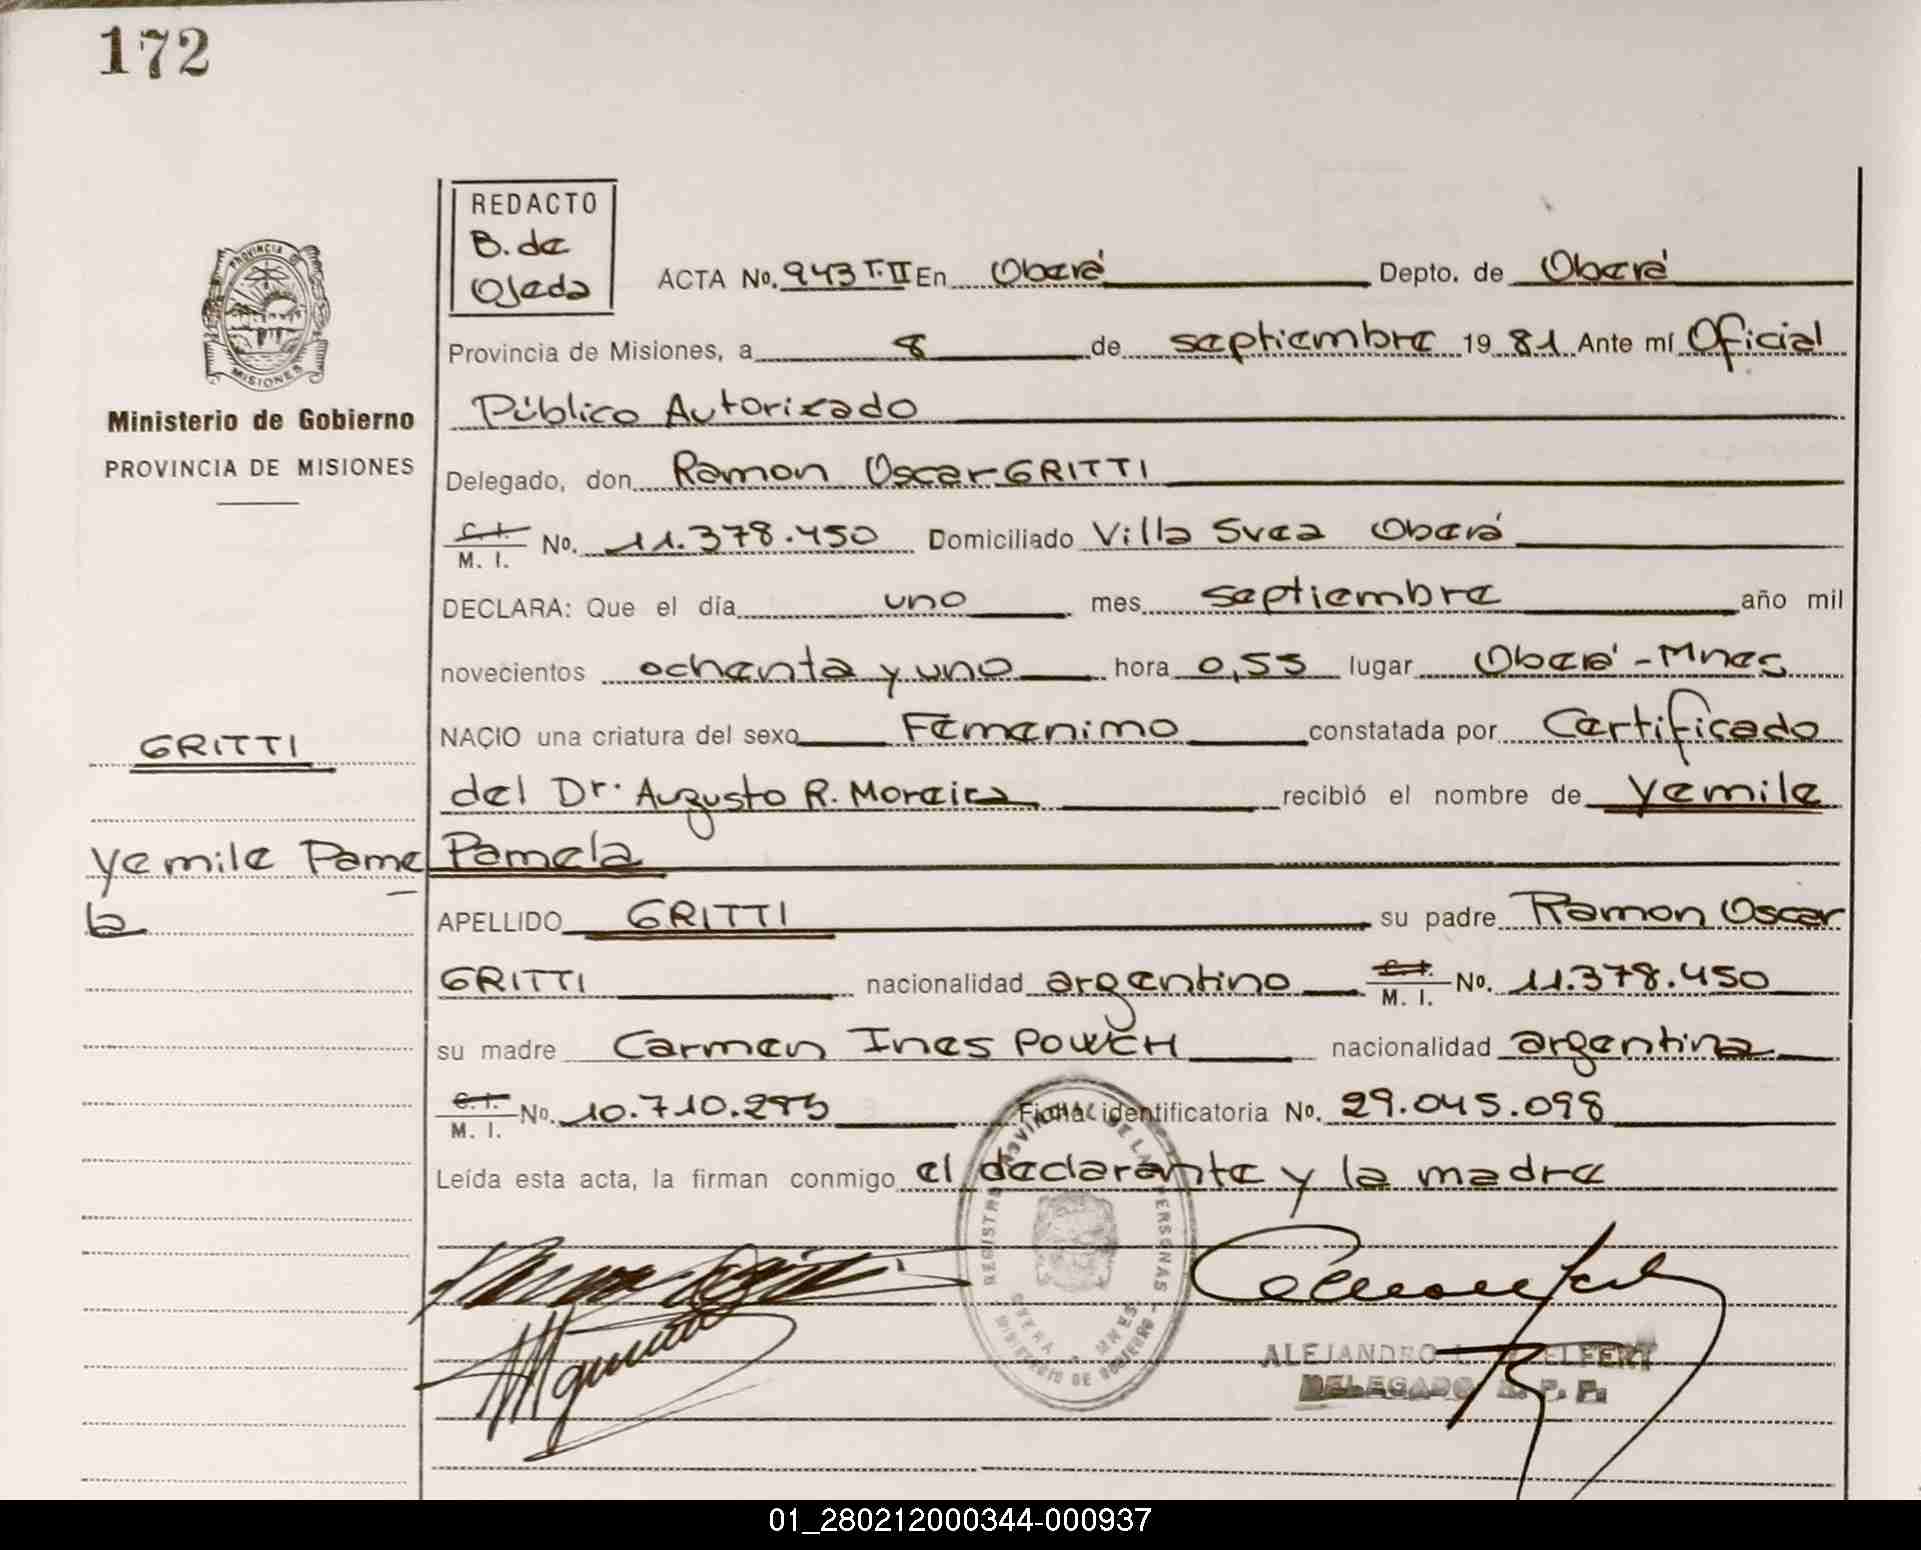 172
REDACTO
B. de
Ojeda
ACTA No. 943 T.II En Oberá Depto. de Oberá
Provincia de Misiones, a 8 de septiembre 19 81 Ante mí Oficial
Público Autorizado
Ministerio de Gobierno
PROVINCIA DE MISIONES
Delegado, don Ramon Oscar GRITTI
C. I.
M. I. No. 11.378.450 Domiciliado Villa Svea Oberá
DECLARA: Que el día uno mes septiembre año mil
novecientos ochenta y uno hora 0,55 lugar Oberá - Mnes
NACIO una criatura del sexo Femenino constatada por Certificado
GRITTI
del Dr. Augusto R. Moreira recibió el nombre de Yemile
Yemile Pame
la
Pamela
APELLIDO GRITTI su padre Ramon Oscar
GRITTI nacionalidad argentino C. I.
M. I. No. 11.378.450
su madre Carmen Ines nacionalidad argentina
C. I.
M. I. No. 10.710. Ficha identificatoria No. 29.045.098
Leída esta acta, la firman conmigo el declarante y la madre
PROVINCIA DE
MISIONES
REGISTRO PROVINCIAL DE LAS PERSONAS
OBERA MNES
MINISTERIO DE GOBIERNO
ALEJANDRO
DELEGADO R. P. P.
01_280212000344-000937